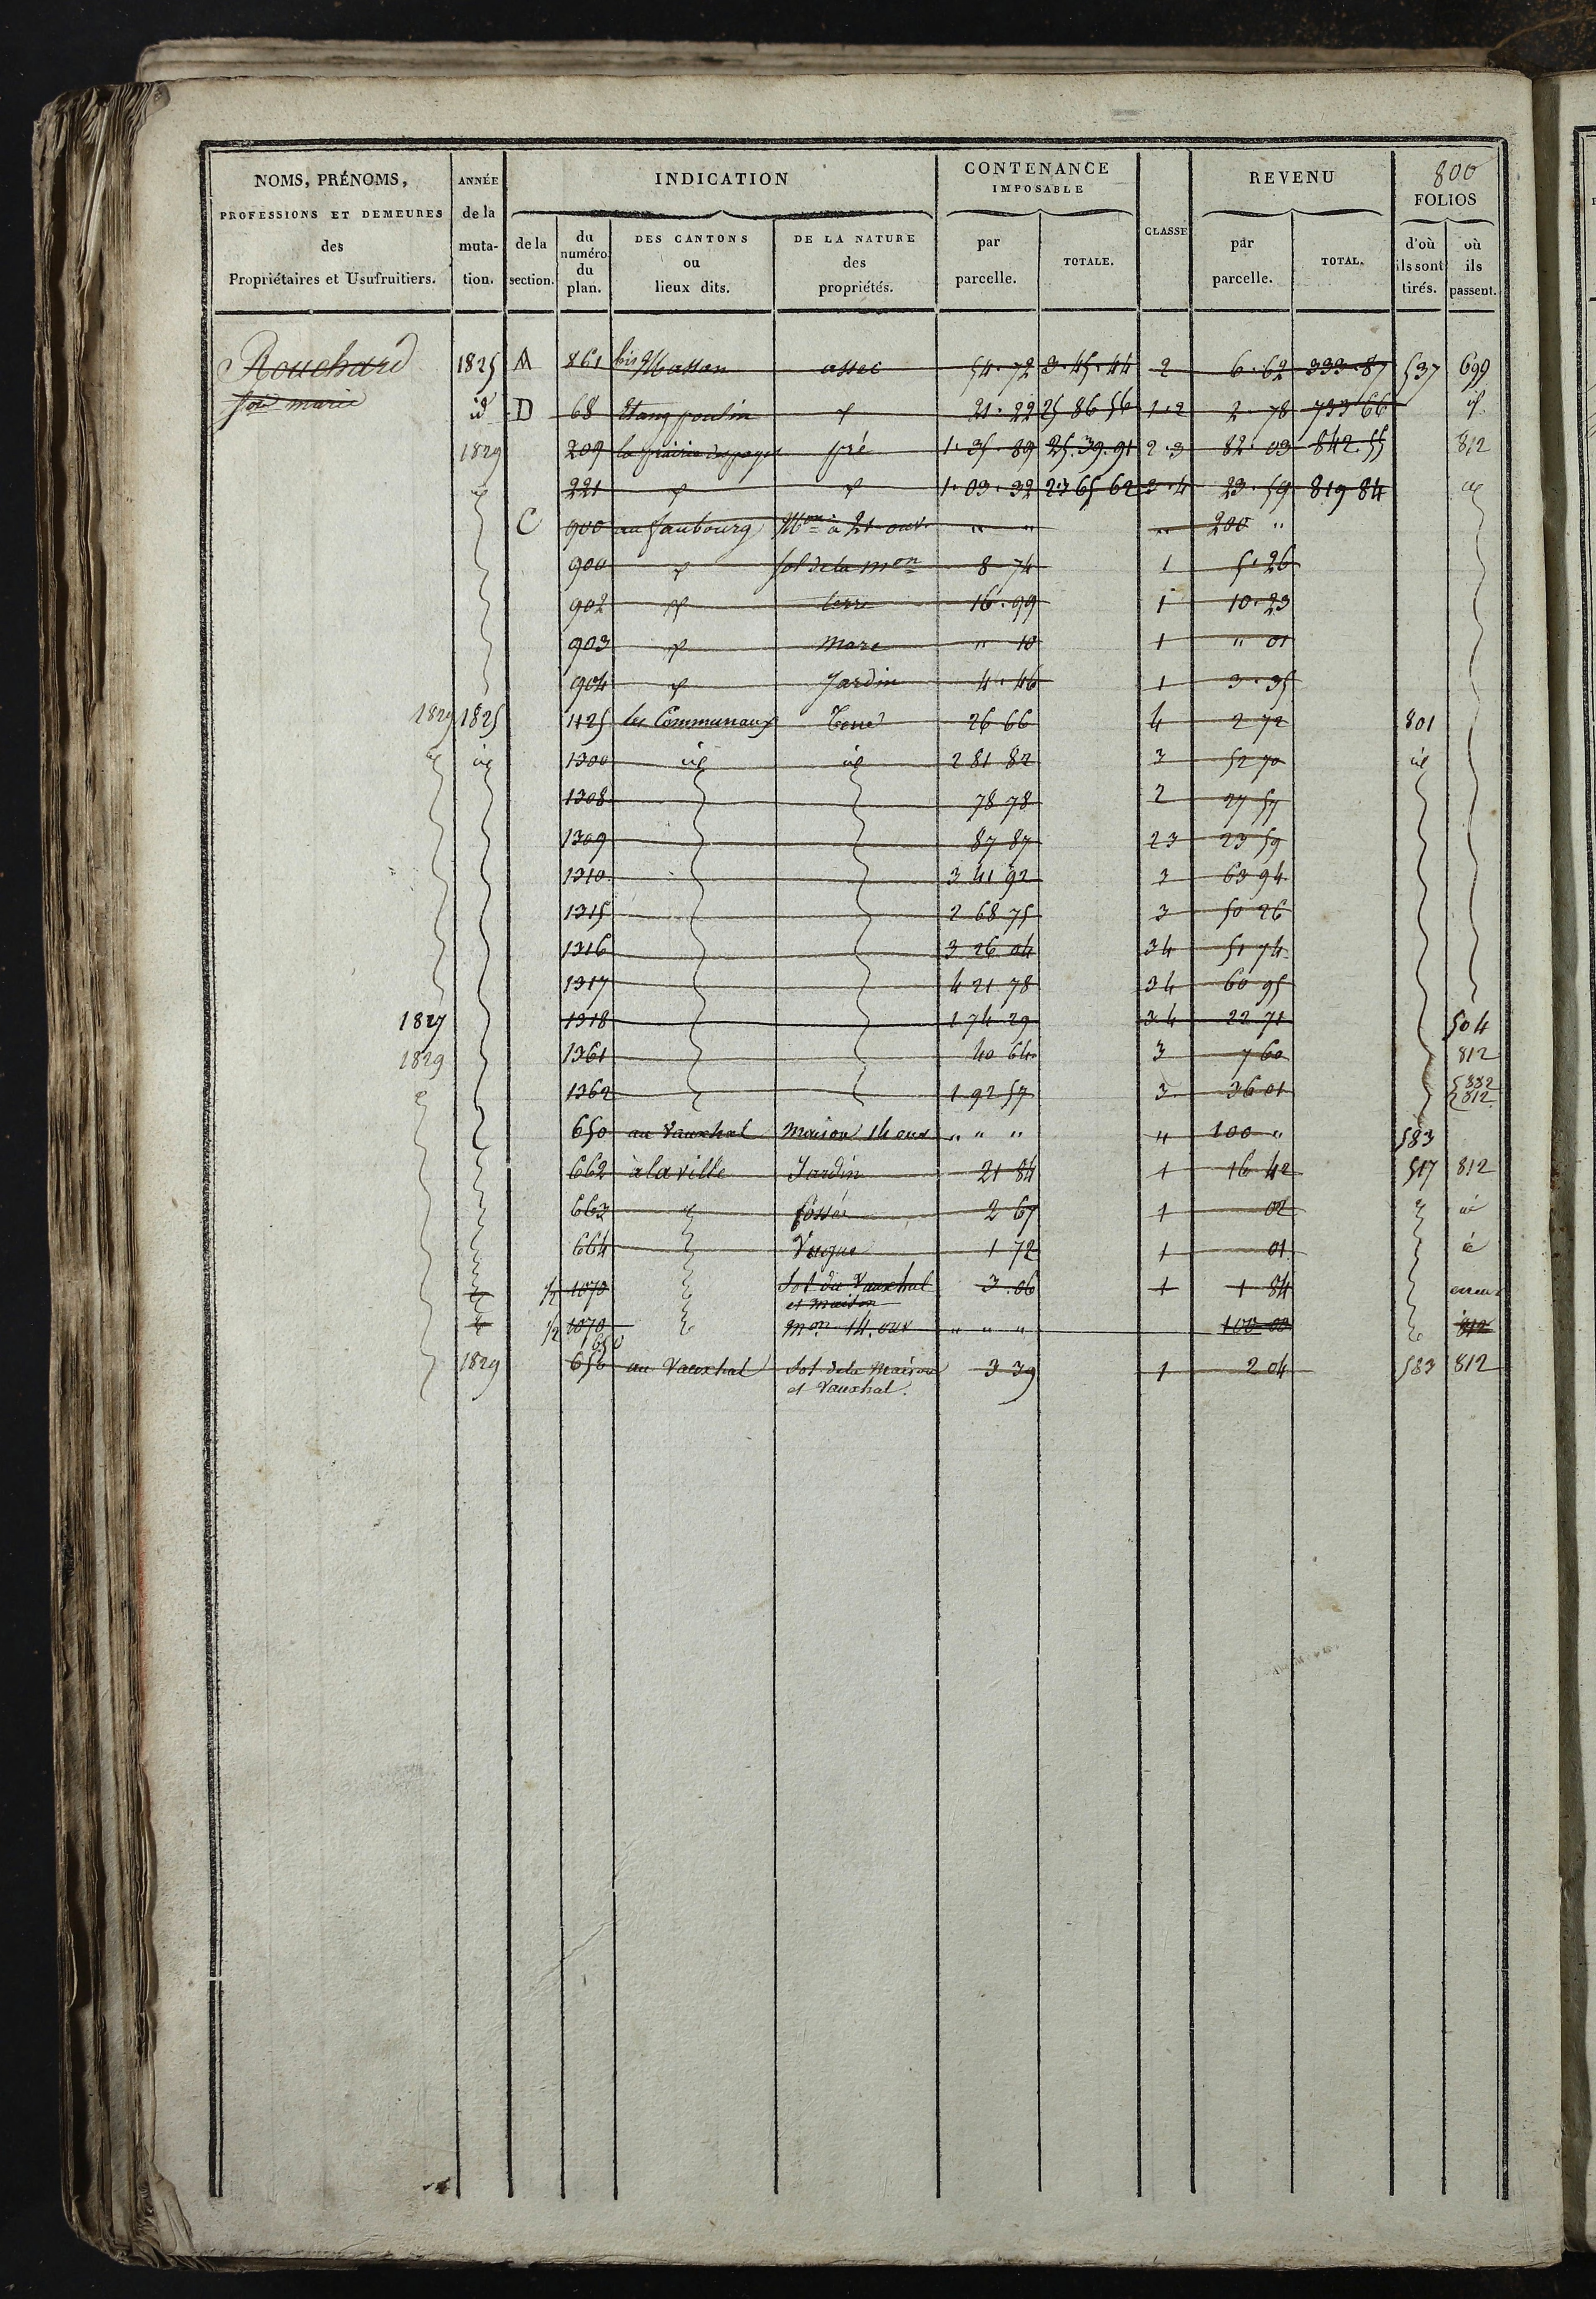 800
NOMS, PRÉNOMS, PROFESSIONS ET DEMEURES des Propriétaires et Usufruitiers.
ANNÉE de la muta- tion.
INDICATION
de la section.
du numéro du plan.
DES CANTONS ou lieux dits.
DE LA NATURE des propriétés.
CONTENANCE IMPOSABLE
par parcelle.
TOTALE.
CLASSE
REVENU
par parcelle.
TOTAL.
FOLIOS
d'où ils sont tirés.
où ils passent.
Rouchard 1825 A 861 bis Masson assec 54.72 3.45.44 2 6.62 333.87 537 699
marie id D 68 Etang poulin 21.22 25 86 56 1.2 2.78 733 66 id
1829 209 la prairie pré 1.35.89 25.39.91 2.3 82.03 842.55 812
221 1.03.32 23 65 62 3.4 23.59 819 84
C 900 au faubourg Mon à 21 ouv. " " " 200 "
900 sol de la mon 8 74 1 5.26
902 terre 16.99 1 10.23
903 mare " 10 1 " 01
904 Jardin 4.46 1 3.35
1829 1825 1125 les Communaux 26 66 4 2 72 801
id id 1300 id id 2 81 82 3 52 70 id
1308 78 78 2 27 57
1309 87 87 23 23 59
1310 3 41 92 3 63 94
1315 2 68 75 3 50 26
1316 3 26 04 34 51 74
1317 4 21 78 34 60 95
1827 1318 1 74 29 34 22 71 504
1829 1361 40 64 3 7 60 812
1362 1 92 57 3 36 01 332 812
650 au Vauxhal maison 14 ouv " " " " 100 " 583
662 à la ville Jardin 21 84 1 16 42 517 812
663 fossé 2 67 1 02 id
664 1 72 1 01 id
1/2 1070 Sol du Vauxhal et maison 3.06 1 1 84 erreur
1/2 1070 mon 14 ouv " " " 100 00 812
1829 650 656 au Vauxhal Sol de la maison et Vauxhal. 3 39 1 2 04 583 812